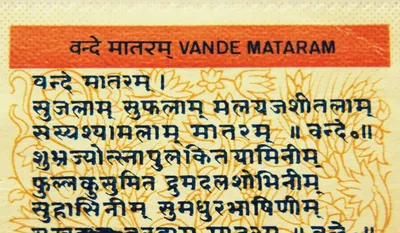 वन्दे मातरम् VANDE MATARAM
वन्दे मातरम् ।
सुजलाम् सुफलाम् मलयजशीतलाम्
सस्यश्यामलाम् मातरम् ॥ वन्दे॰॥
शुभ्रज्योत्स्नापुलकितयामिनीम्
फुल्लकुसुमित द्रुमदलशोभिनीम्
सुहासिनीम् सुमधुरभाषिणीम्
मातरम् ॥ वन्दे॰॥